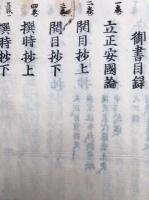 御書目録
一巻
立正安國論
二巻
開目抄上
三巻
開目抄下
四巻
撰時抄上
撰時抄下